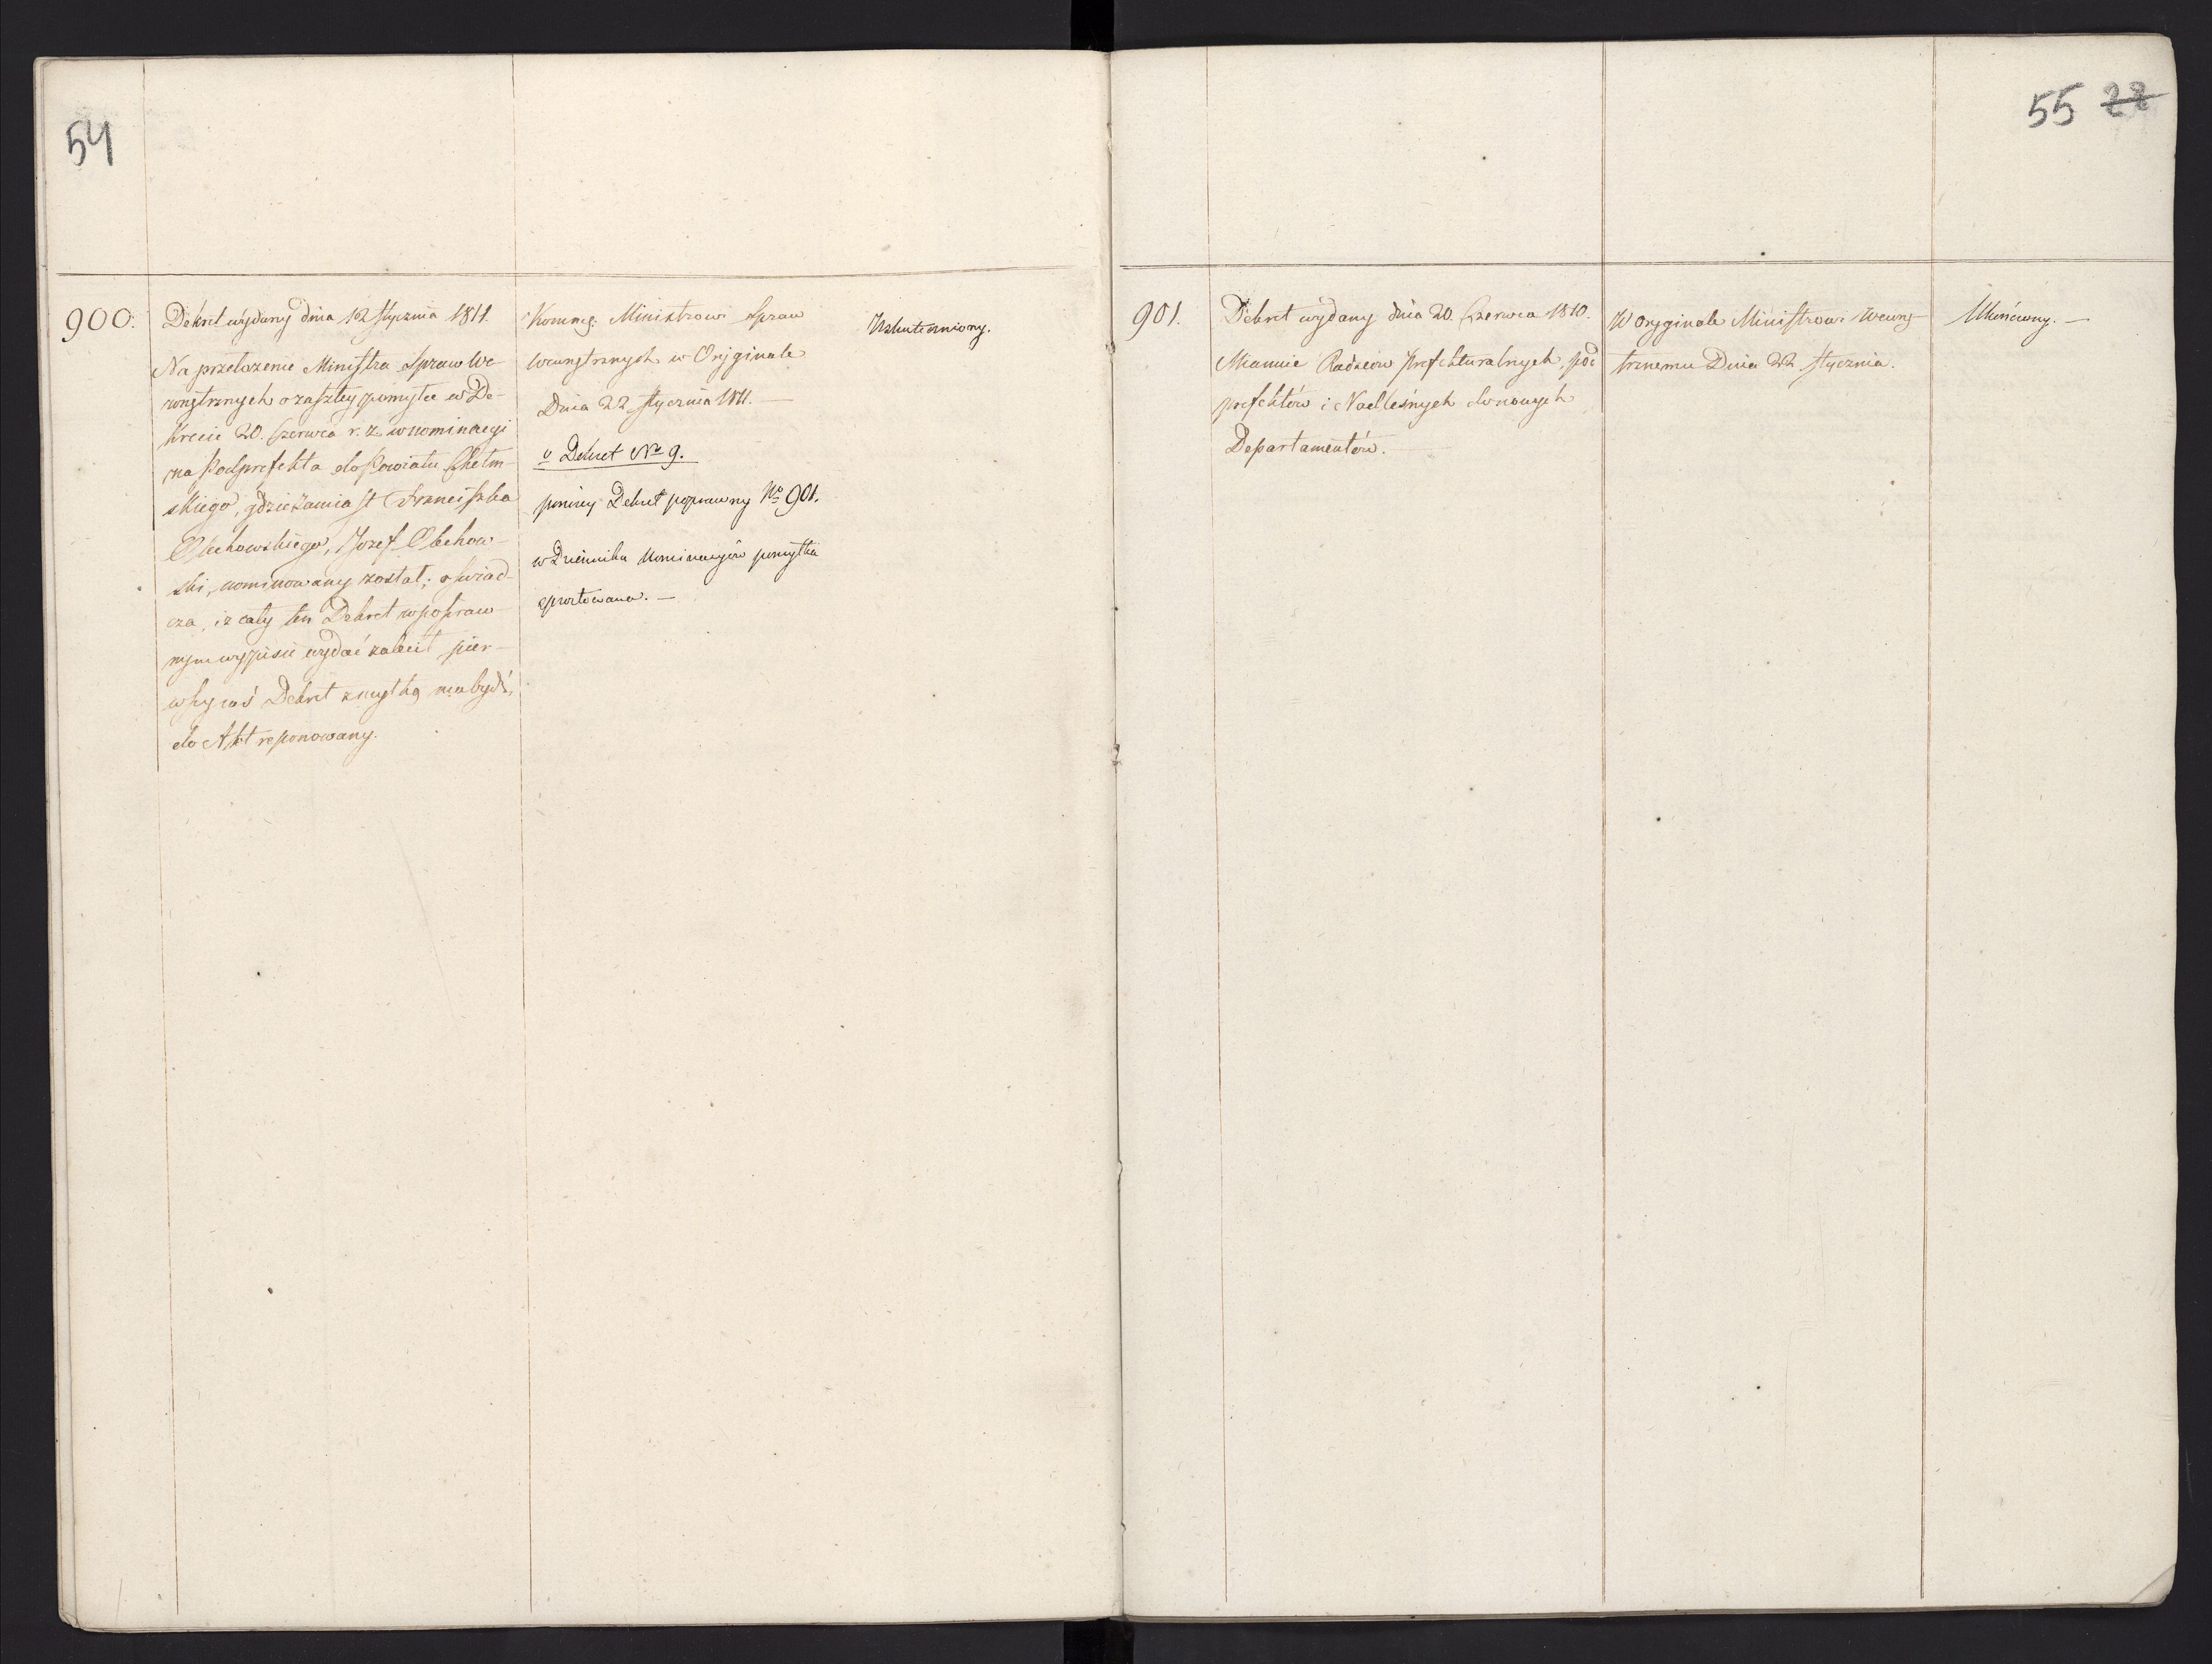 54
900.
Dekret wydany dnia 12 Stycznia 1811.
Na przełożenie Ministra Spraw We-
wnętrznych o zaszłey pomyłce w De-
krecie 20. Czerwca r. z. w nominacyi
na Podprefekta do Powiatu Chełm-
skiego, gdzie zamiast Franciszka
Obchowskiego, Jozef Obchow-
ski, nominowany został; oświad-
cza, iż cały ten Dekret w popraw-
nym wypisie wydać zalecił pier-
wszy zaś Dekret z myłką ma bydź,
do Akt reponowany.
Kommq. Ministrowi Spraw
Wewnętrznych w Oryginale
Dnia 22 Stycznia 1811. —
v Dekret No 9.
poniżey Dekret poprawny No 901.
w Dzienniku Nominacyiów pomyłka
sprostowana. —
Uskuteczniony.
55 22
901.
Dekret wydany dnia 20. Czerwca 1810.
Mianuie Radzców prefekturalnych, pod
prefektów i Nadleśnych do nowych
Departamentów. —
W Oryginale Ministrowi Wewnę-
trznemu Dnia 22. Stycznia.
Ukończony. —